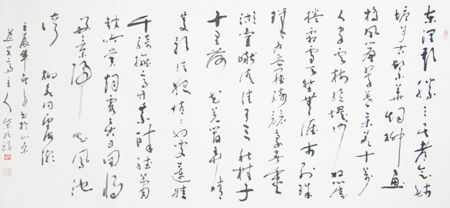 东南形胜三吴都会钱
塘自古繁华烟柳画
桥风帘翠幕参差十万
人家云树绕堤沙怒涛
卷霜雪天堑无涯市列珠
玑户盈罗绮竞豪奢重
湖叠巘清佳有三秋桂子
十里荷花羌管弄晴
菱歌泛夜嬉嬉钓叟莲娃
千骑拥高牙乘醉听箫
鼓吟赏烟霞异日图将
好景归去凤池
夸 柳永词望海潮
壬辰年 书於北京
主人